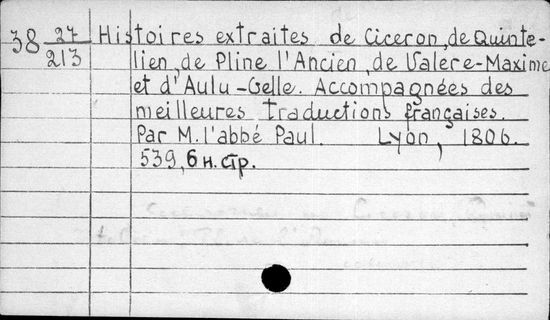 38 27/213 Histoires extraites de Ciceron, de Quinte-
lien, de Pline l'Ancien, de Valère-Maxime
et d'Aulu-Gelle. Accompagnées des
meilleures traductions françaises.
Par M. l'abbé Paul. Lyon, 1806.
539, 6 н. стр.